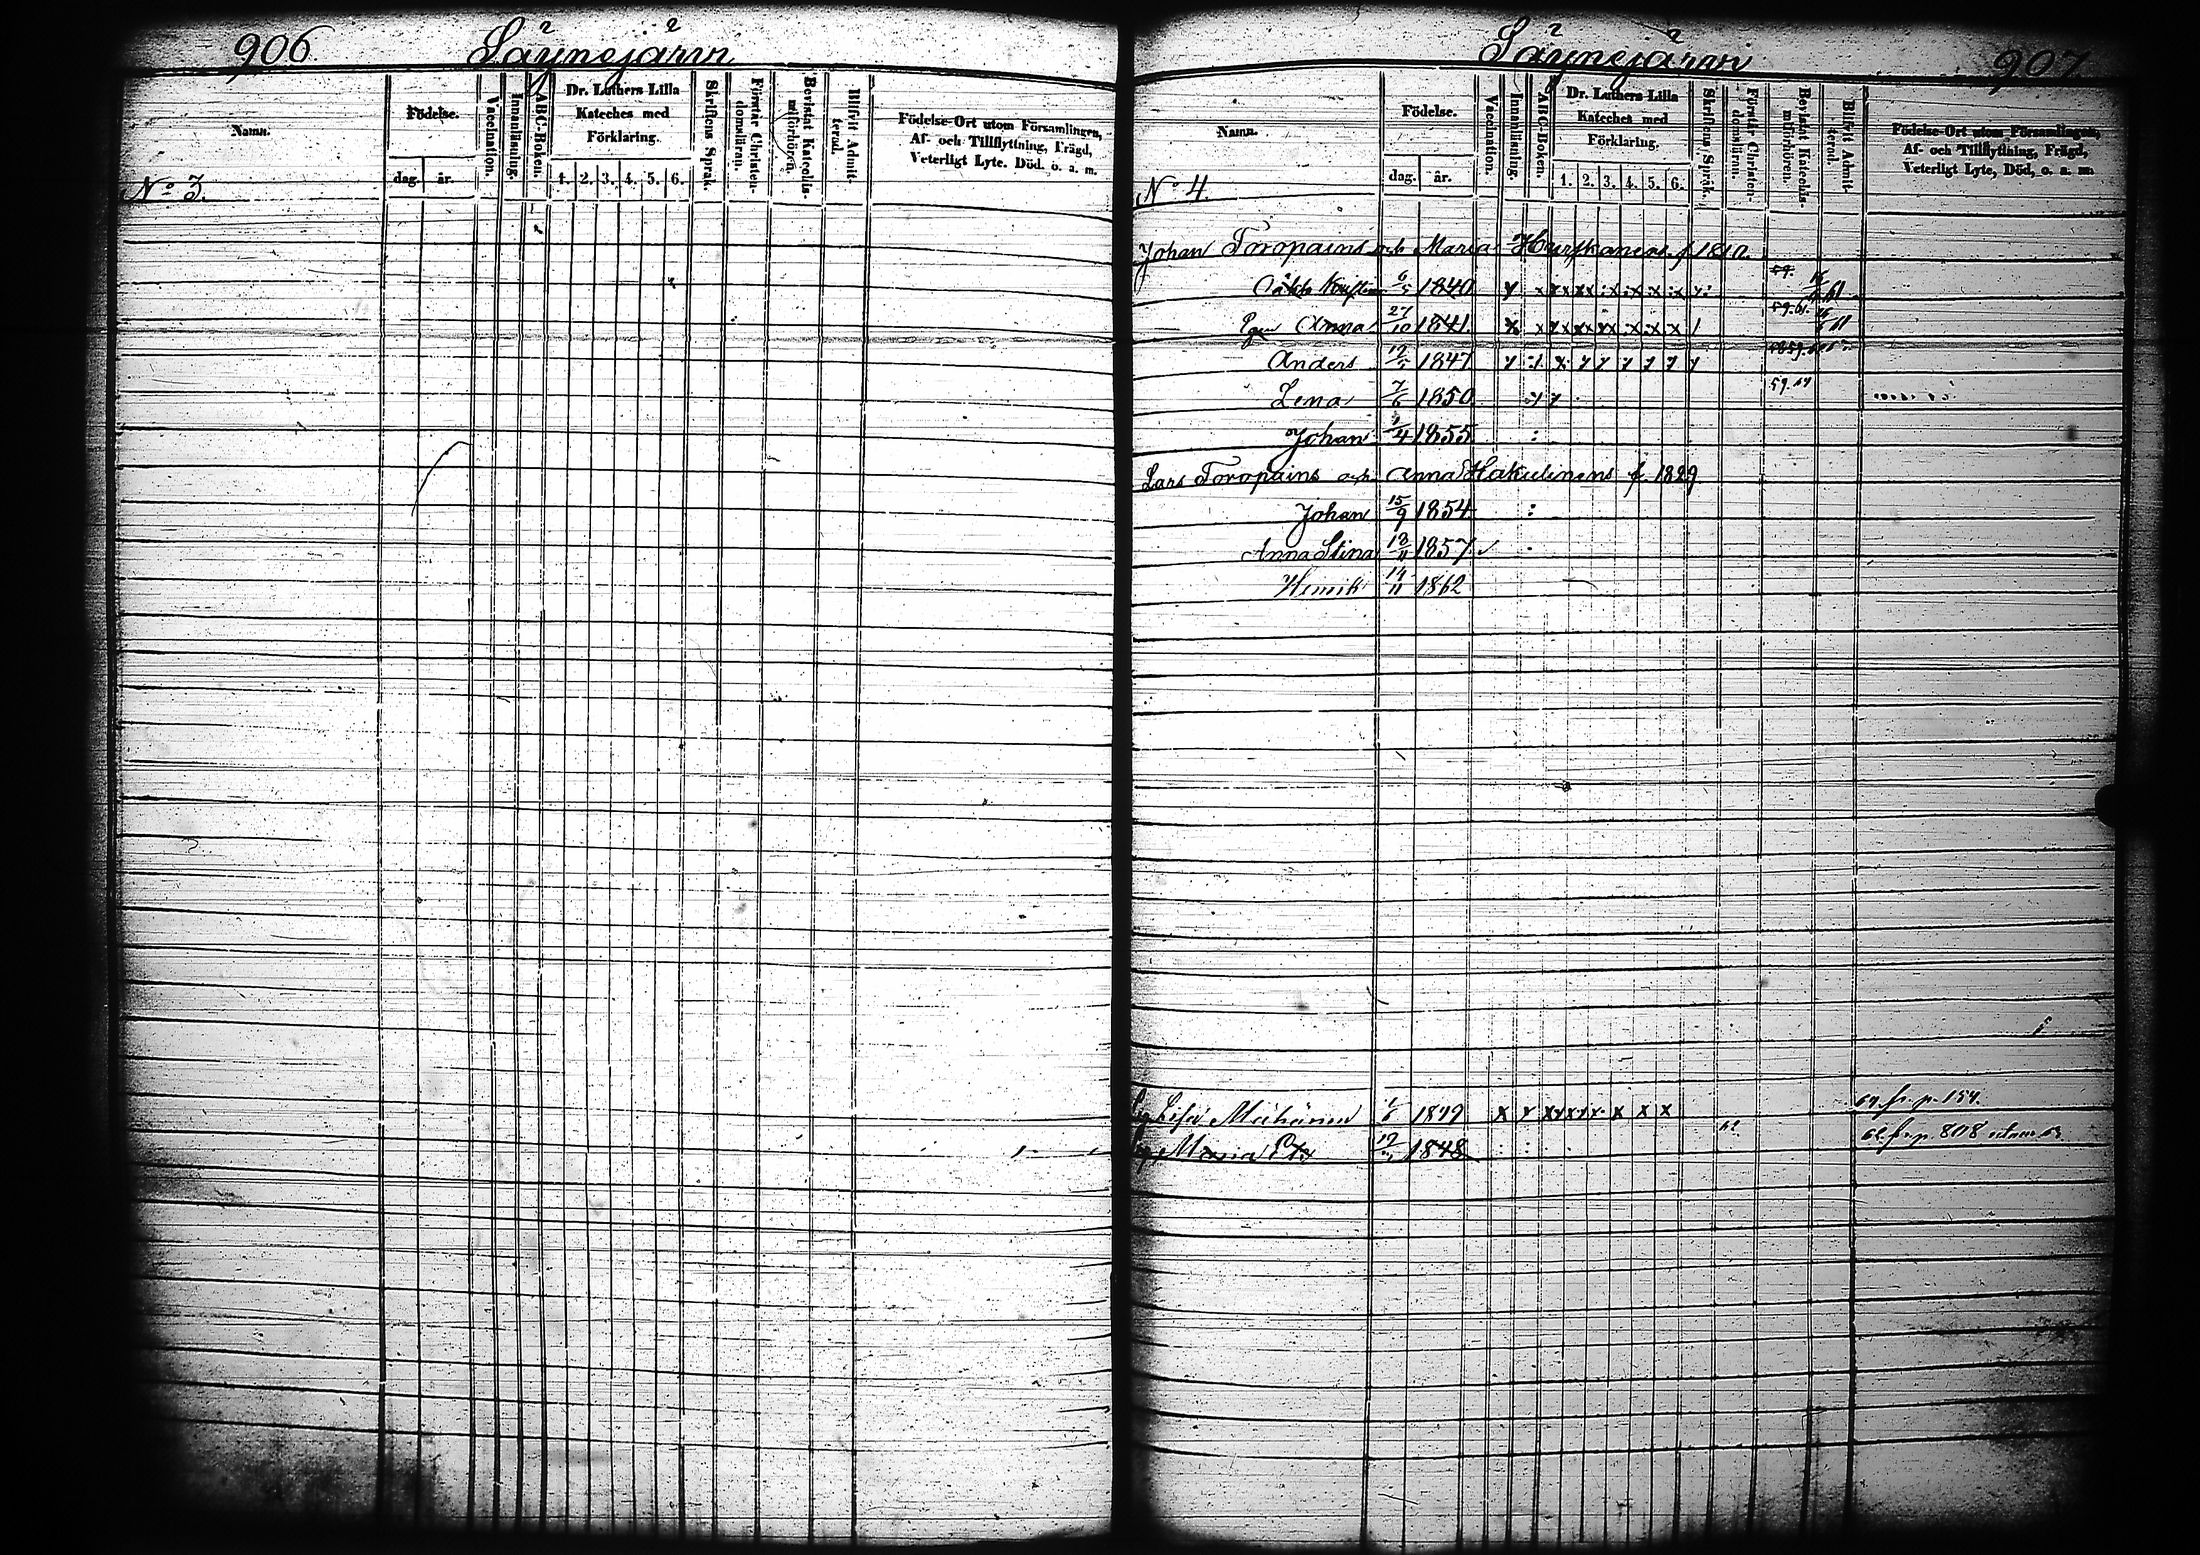 906 Säynejärvi
Namn.
Födelse.
dag. år.
Vaccination.
Innanläsning.
ABC-Boken.
Dr. Luthers Lilla
Kateches med
Förklaring.
1. 2. 3. 4. 5. 6.
Skriftens Språk.
Förstår Christen-
domsläran.
Bevistat Katechis-
miförhören.
Blifvit Admit-
terad.
Födelse-Ort utom Församlingen,
Af- och Tillflyttning, Frägd,
Veterligt Lyte. Död. o. a. m.
No 3.
Säynejärvi 907
Namn.
Födelse.
dag. år.
Vaccination.
Innanläsning.
ABC-Boken.
Dr. Luthers Lilla
Kateches med
Förklaring.
1. 2. 3. 4. 5. 6.
Skriftens Språk.
Förstår Christen-
domsläran.
Bevistat Katechis-
miförhören.
Blifvit Admit-
terad.
Födelse-Ort utom Församlingen,
Af- och Tillflyttning, Frägd,
Veterligt Lyte, Död, o. a. m.
No 4.
Johan Toropains och Maria f 1810.
6/5 1840
Anna 27/10 1841 59.61
Anders 1847
Lena 7/6 1850 59
Johan /4 1855
Lars Toropains och Anna Hakulinens f. 1829
Johan 15/9 1854
Anna Stina 18/11 1857
Henrik 14/11 1862
Lisa 18 p. 154.
Maria 1848 62 62 fr p. 808